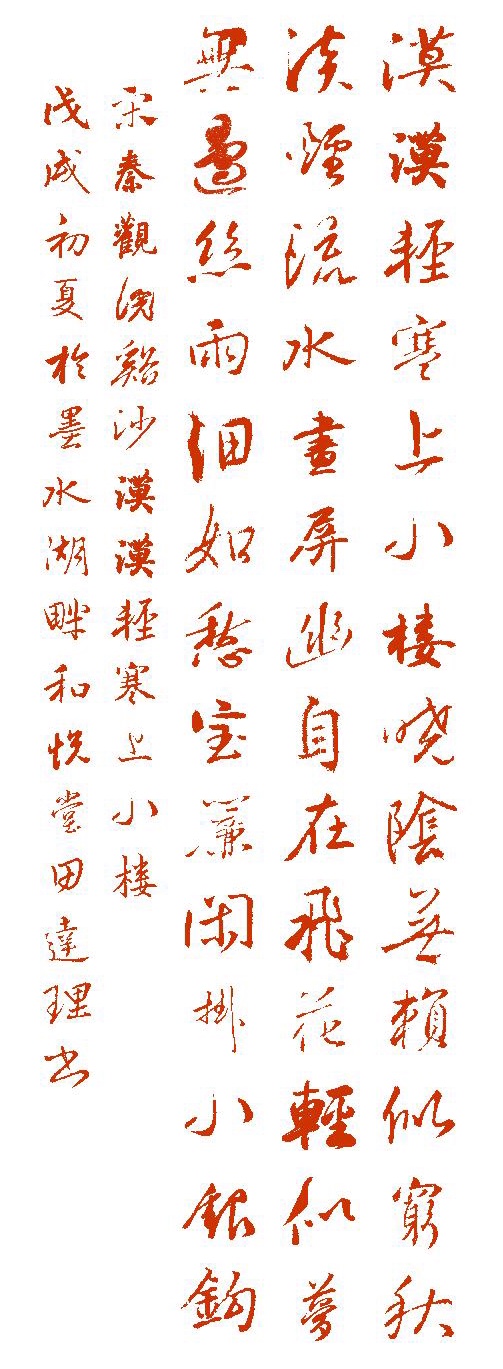 漠漠輕寒上小樓曉陰無賴似窮秋
淡煙流水畫屏幽自在飛花輕似夢
無邊絲雨細如愁宝簾閑掛小銀鉤
宋秦觀浣谿沙漠漠輕寒上小樓
戊戌初夏於墨水湖畔和悅堂田達理书